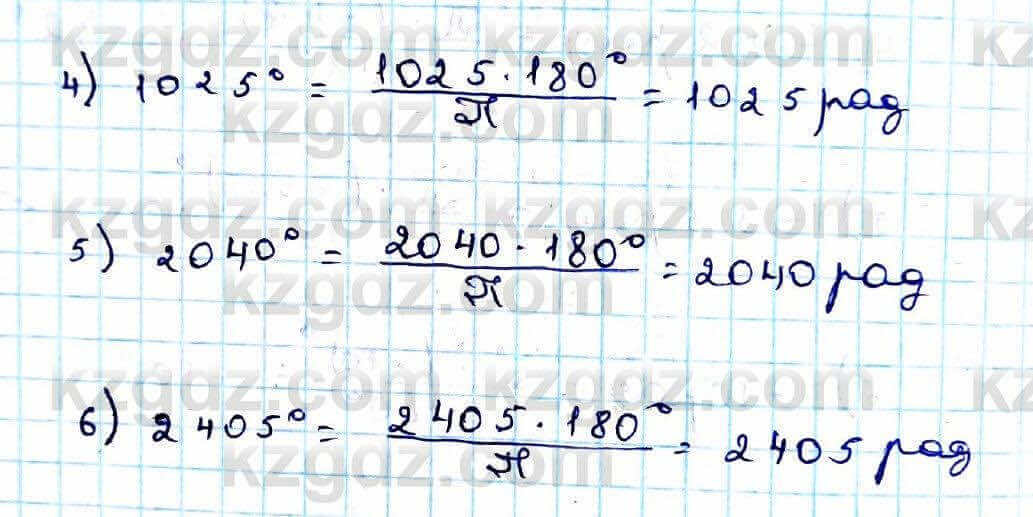 kzgdz.com kzgdz.com kz
4) 1025° = 1025·180°/π = 1025 рад
kzgdz.com kzgdz.com
kzgdz.com kzgdz.com kz
5) 2040° = 2040·180°/π = 2040 рад
kzgdz.com kzgdz.com
kzgdz.com kzgdz.com kz
6) 2405° = 2405·180°/π = 2405 рад
kzgdz.com kzgdz.com